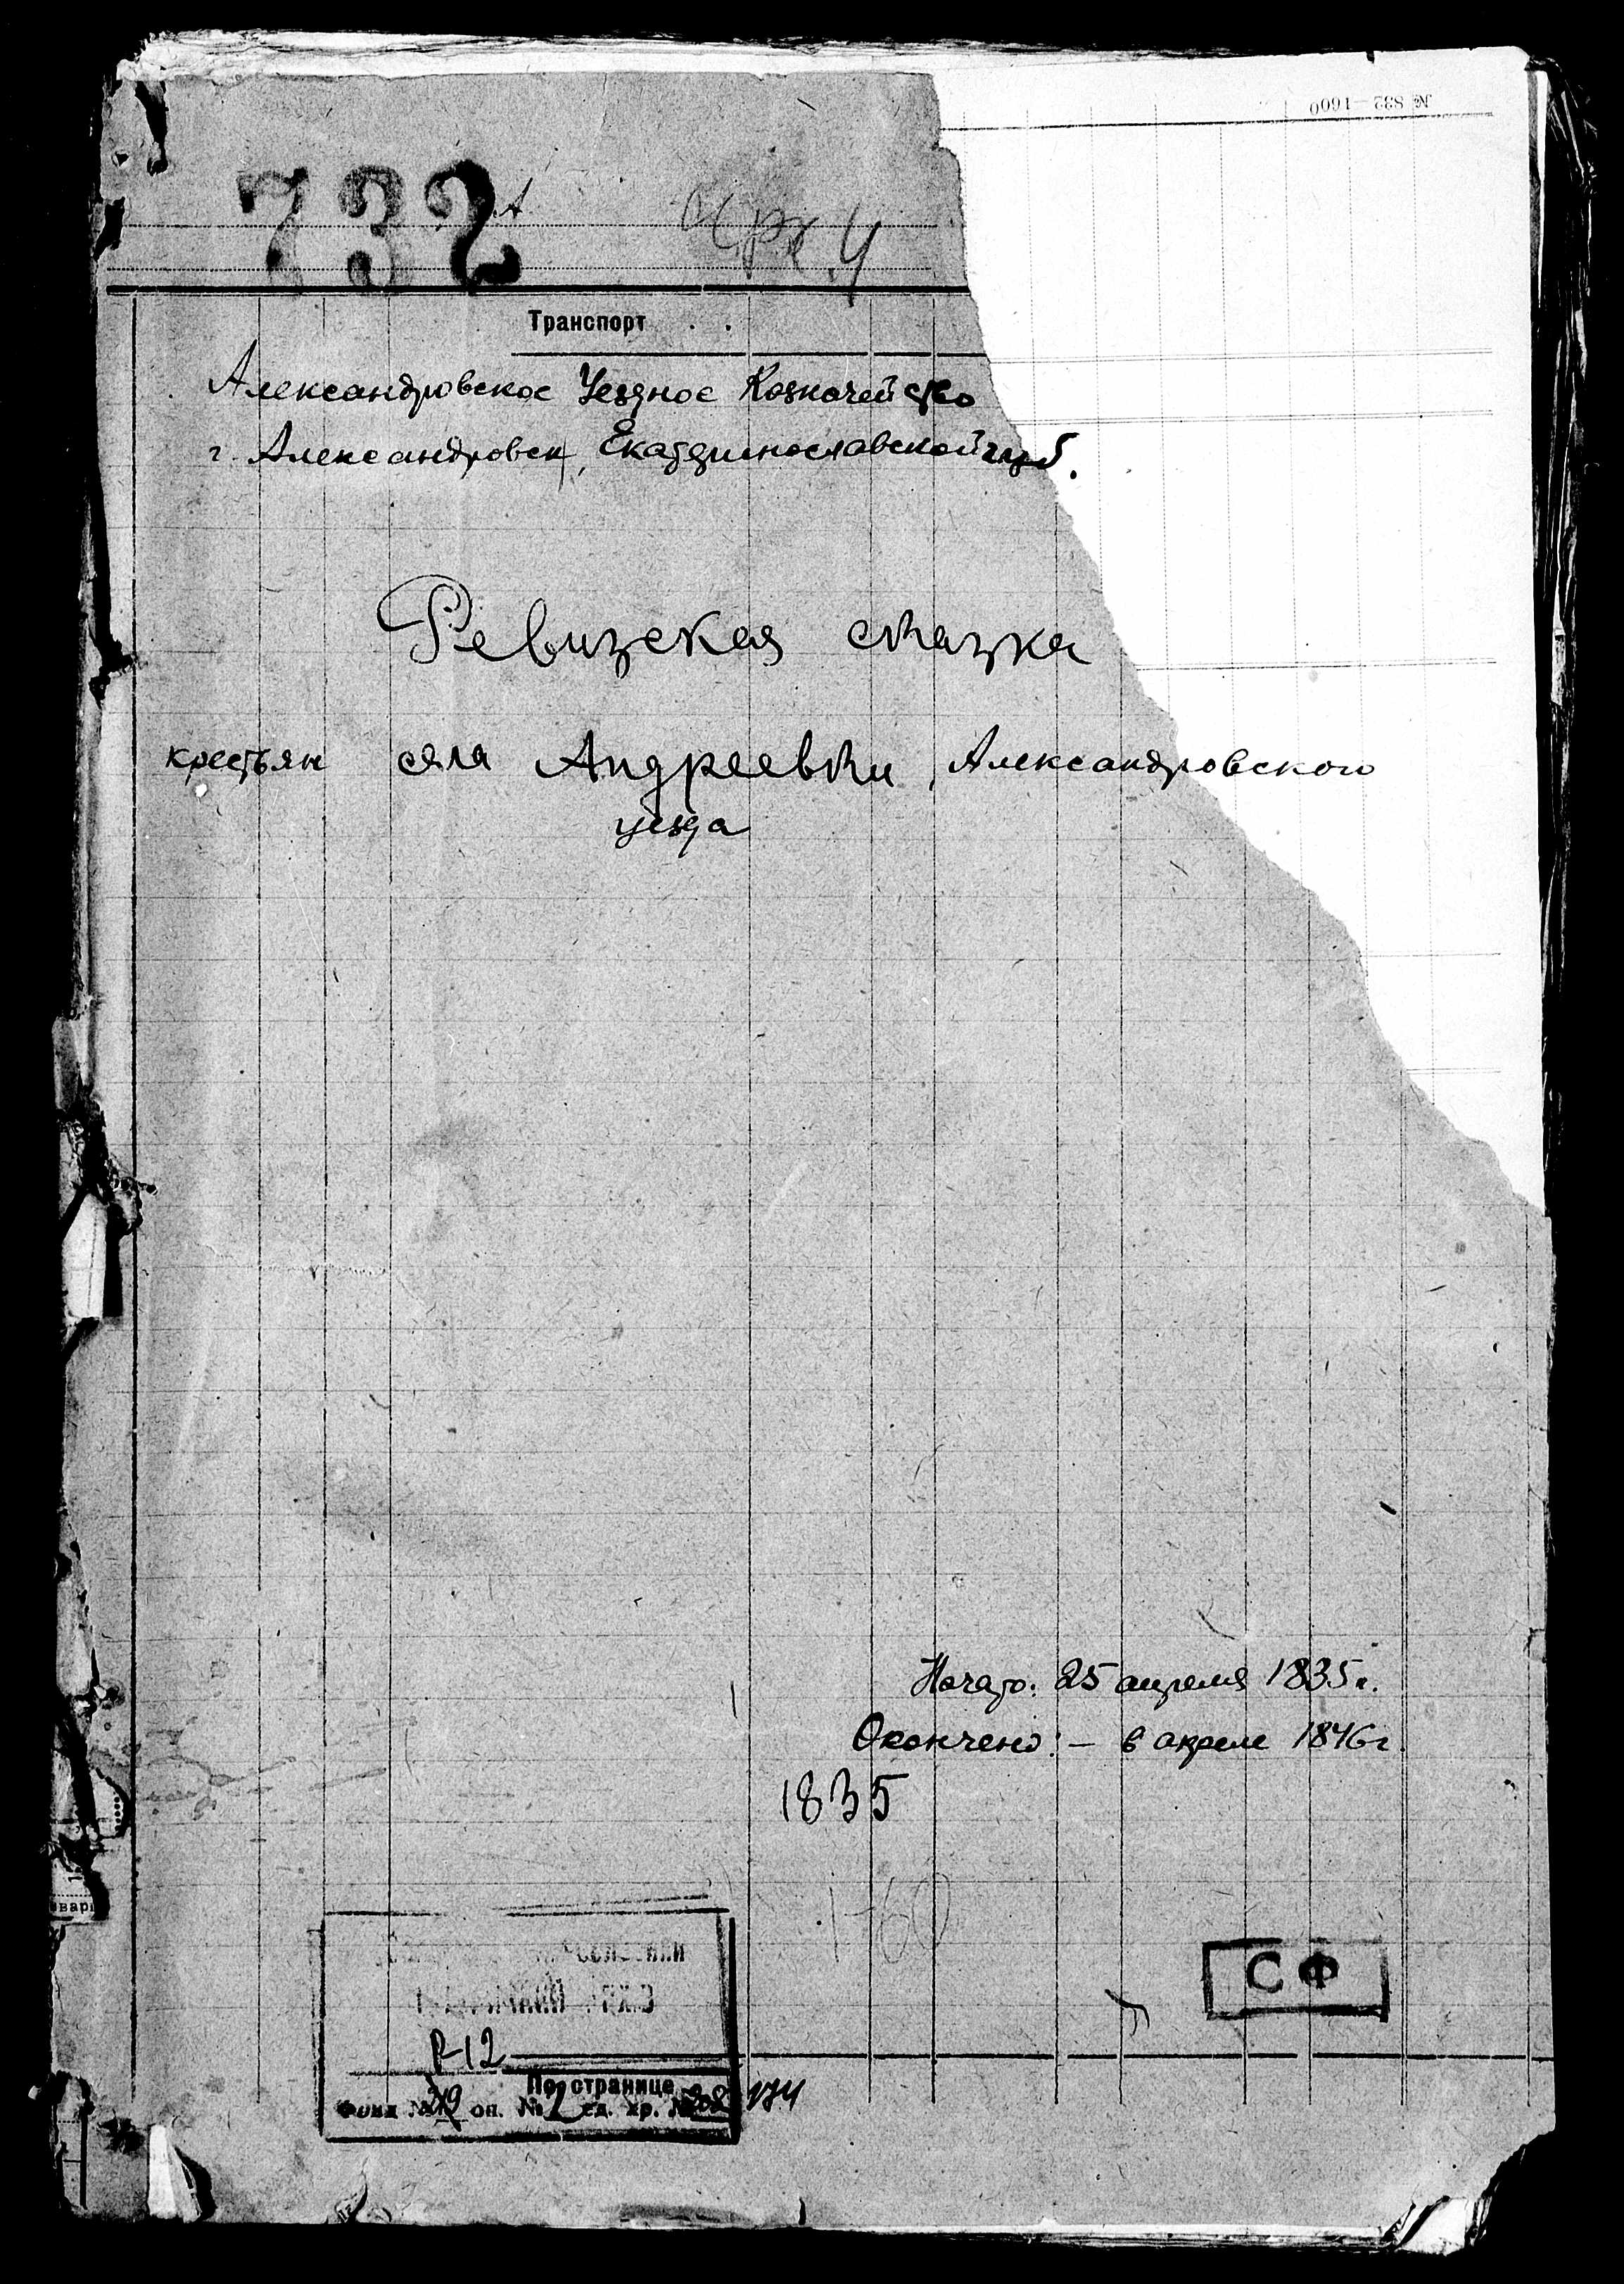 № 832—1600
732 А
Транспорт . .
Александровское Уездное Казначейство
г. Александровск, Екатеринославской губ.
Ревизская сказка
крестьян села Андреевки, Александровского
уезда
Начато: 25 апреля 1835г.
Окончено: – в апреле 1846г.
1835
1-60
СФ
Р-12
По странице
Фонд № оп. № 2 ед. хр. № 174